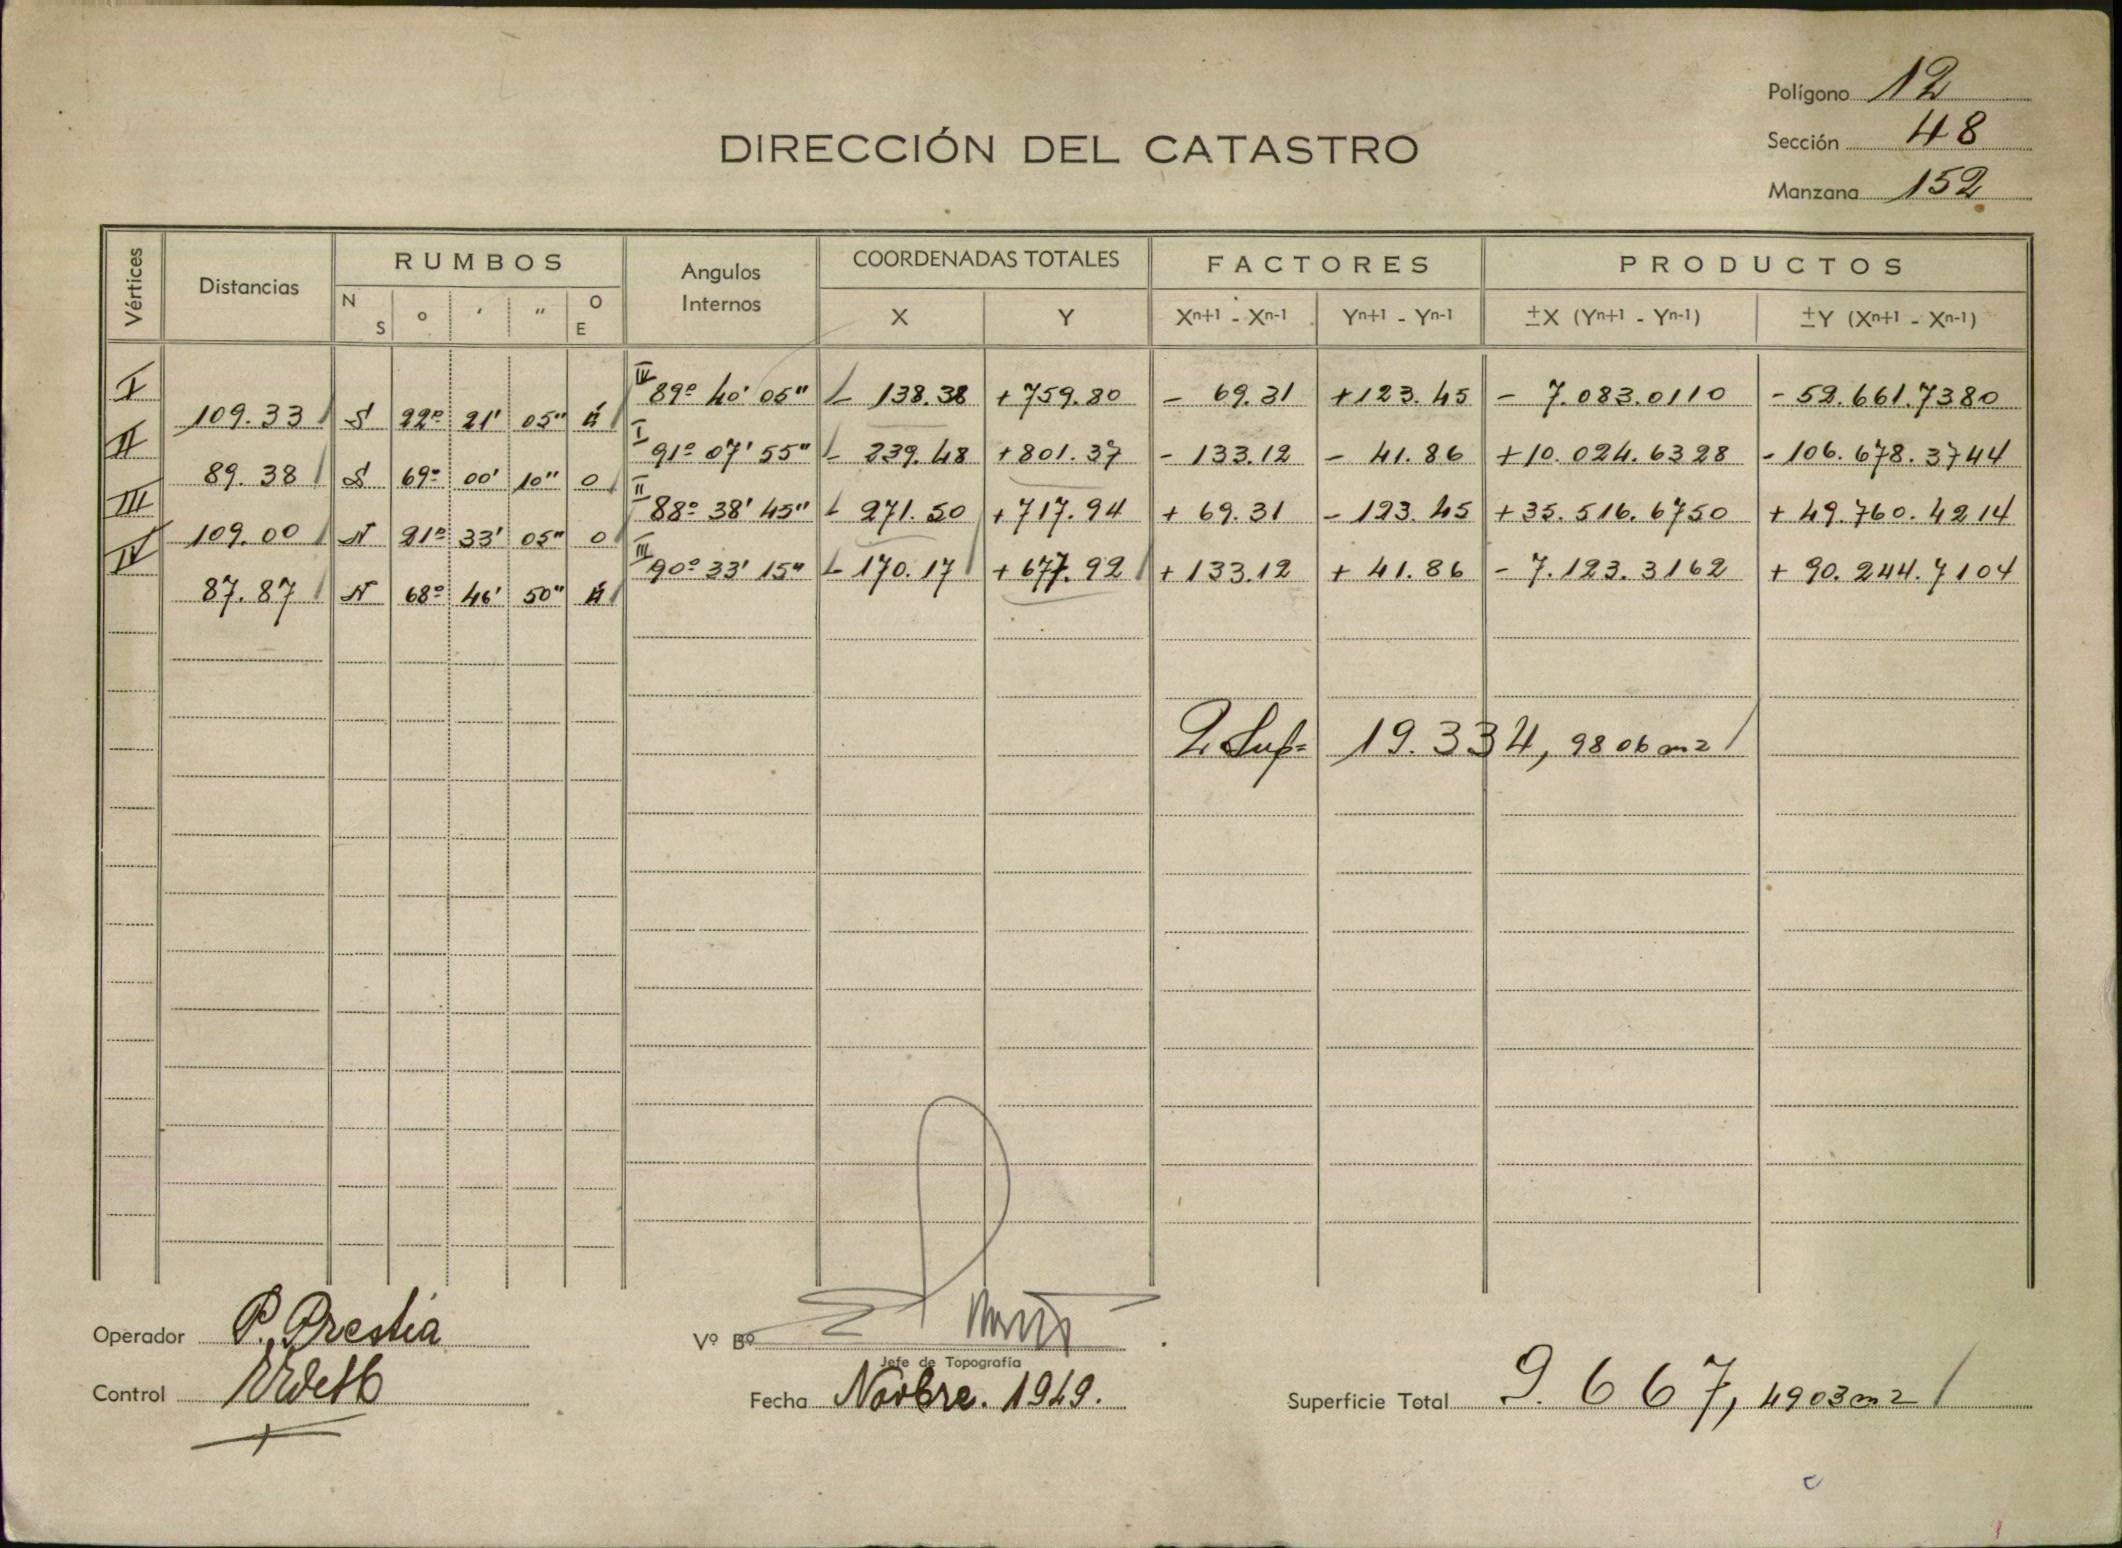 Polígono 12
DIRECCIÓN DEL CATASTRO
Sección 48
Manzana 152
Vértices Distancias RUMBOS Angulos Internos COORDENADAS TOTALES FACTORES PRODUCTOS
N S º ' " O E X Y Xn+1 - Xn-1 Yn+1 - Yn-1 ±X (Yn+1 - Yn-1) ±Y (Xn+1 - Xn-1)
I IV 89º 40' 05" - 138.38 +759.80 - 69.31 +123.45 - 7.083.0110 - 52.661.7380
109.33 S 22º 21' 05" E
II I 91º 07' 55" - 239.48 +801.37 - 133.12 - 41.86 +10.024.6328 - 106.678.3744
89.38 S 69º 00' 10" O
III II 88º 38' 45" - 271.50 +717.94 + 69.31 - 123.45 +35.516.6750 + 49.760.4214
109.00 N 21º 33' 05" O
IV III 90º 33' 15" - 170.17 +677.92 + 133.12 + 41.86 - 7.123.3162 + 90.244.7104
87.87 N 68º 46' 50" E
2 Sup= 19.334,9806 m2
Operador P. Prestia
Vº Bº
Jefe de Topografía
Control
Fecha Novbre. 1949.
Superficie Total 9.667,4903 m2